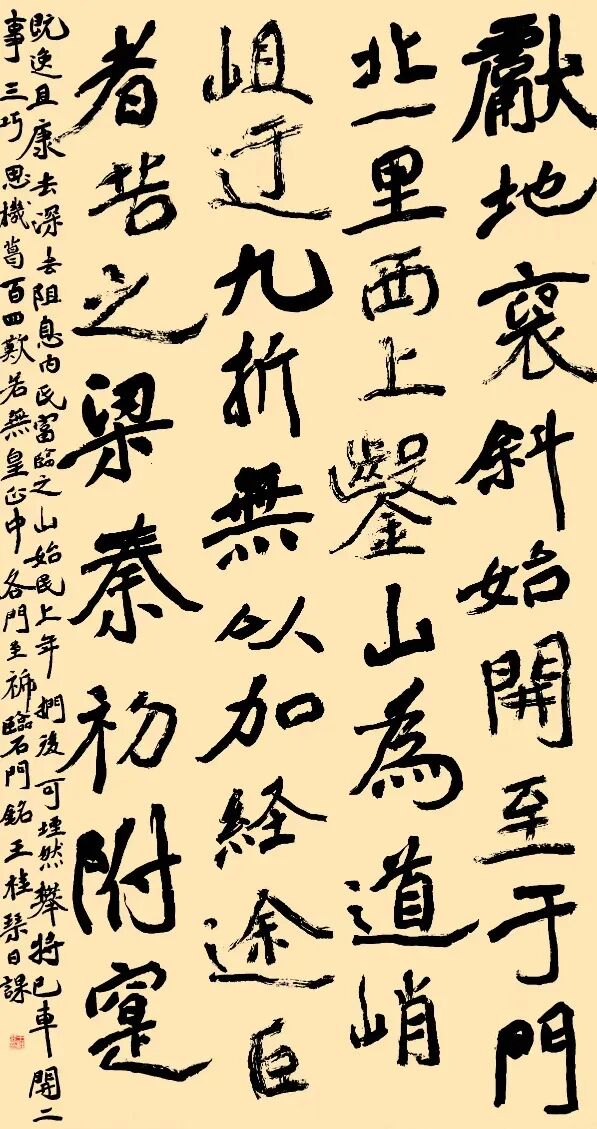 獻地褒斜始開至于門
北一里西上鑿山為道峭
岨迂九折無以加経途巨
者苦之梁秦初附寔
既逸且康去深去阻息內民富臨之山始民上年捫後可堙然攀將已車開二
事三巧思機葛百四歎若無皇正中各門至臨石門銘王桂琹日課